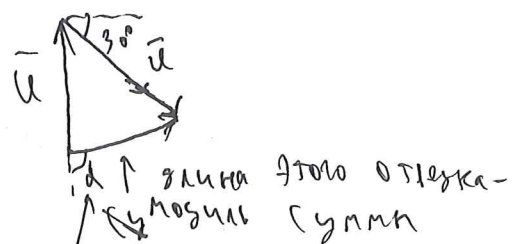 30°
ū
ū
α длина этого отрезка-
модуль суммы